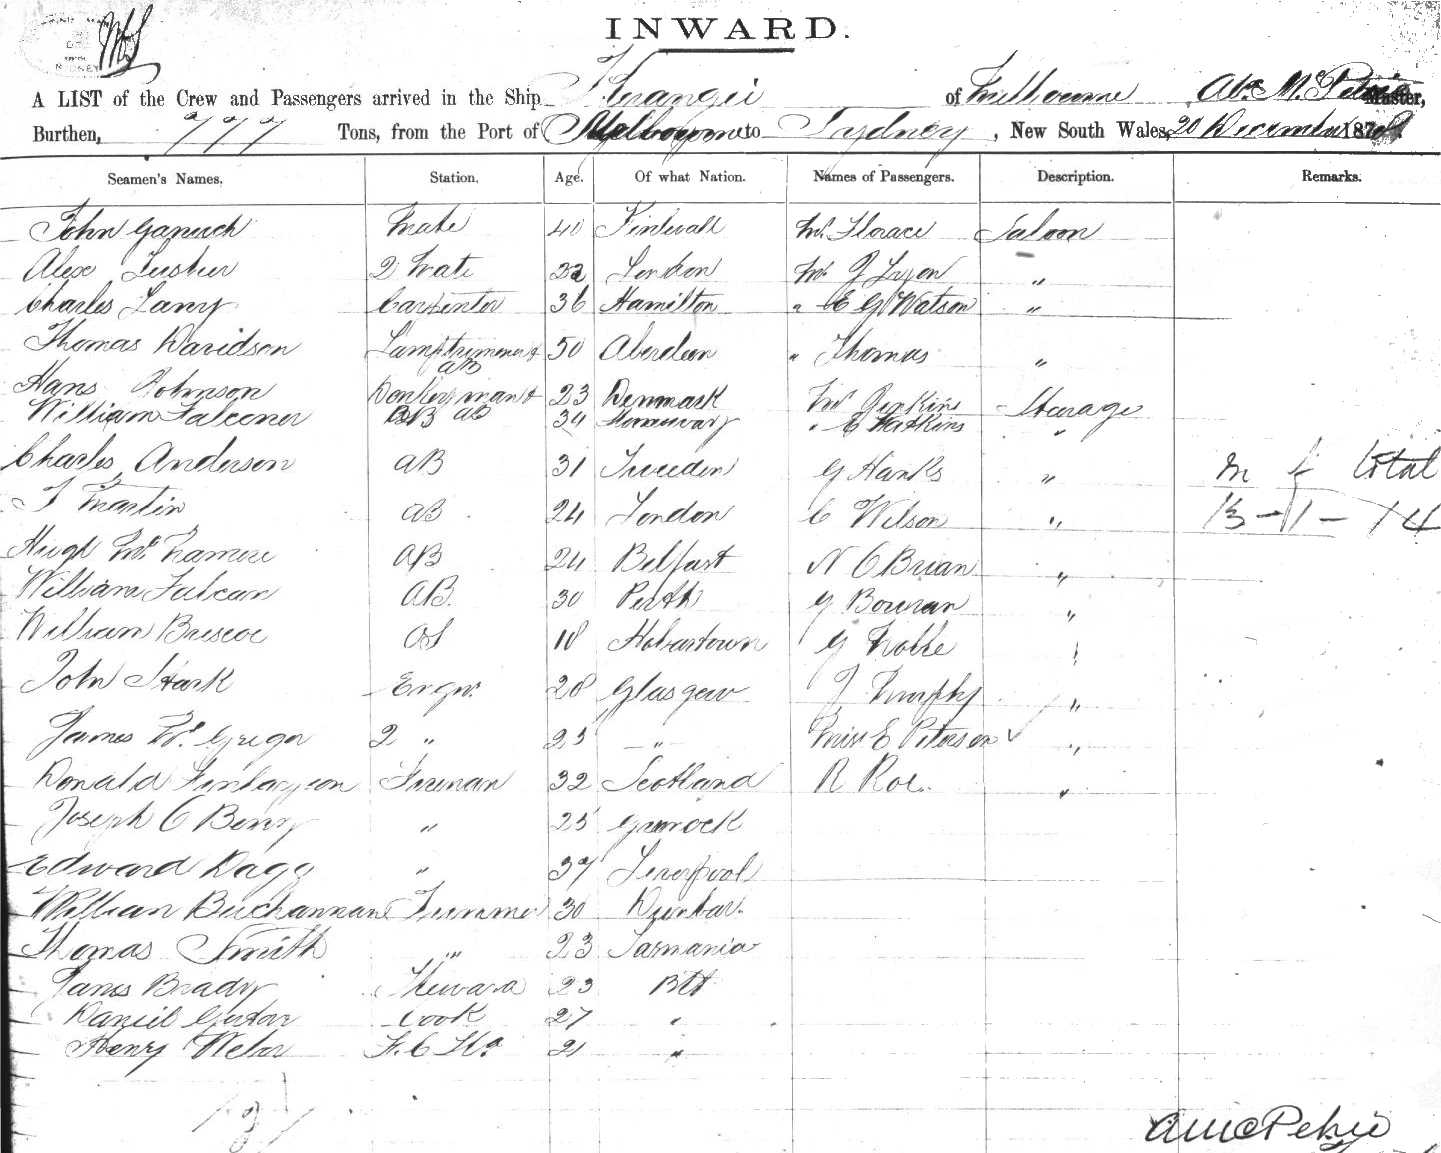 INWARD.
A LIST of the Crew and Passengers arrived in the Ship of Melbourne Master,
Burthen, 777 Tons, from the Port of Melbourne to Sydney, New South Wales, 20 December 187
Seamen's Names. Station. Age. Of what Nation. Names of Passengers. Description. Remarks.
John Mate 40 Mr. Horace Saloon
Alex 2 Mate 22 London Mr J Lyon "
Charles Lamy Carpenter 36 Hamilton " E G Watson "
Thomas Davidson Lamptrimmer & AB 50 Aberdeen " Thomas "
Hans Johnson Donkeyman & AB 23 Denmark Mr Jenkins Steerage
William Falconer AB 34 " C Watkins "
Charles Anderson AB 31 Sweden G Hanks " m f total
J Martin AB 24 London C Wilson " 13 - 1 - 14
Hugh McNamee AB 24 Belfast N O Brian "
William AB. 30 Perth G Bowman "
William Briscoe OS 18 Hobartown G Noble "
John Stark Engr. 28 Glasgow J Murphy "
James Mc Gregor 2 " 25 " E Peterson "
Donald Finlayson Fireman 32 Scotland R Roe. "
Joseph O Berry " 25 Greenock
Edward Dagg " 37 Liverpool
William Buchannan Trimmer 30 Dunbar.
Thomas Smith " 23 Tasmania
James Brady Steward 23
Daniel Cook 27 "
Henry Weber 21 "
21
A McPetrie